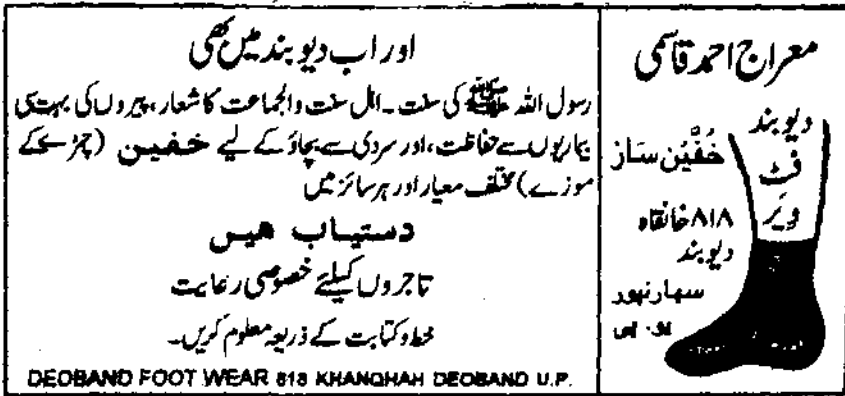 معراج احمد قاسمی
دیوبند
خُفَّین سَاز
فٹ
ویَر
۸۱۸ خانقاہ
دیوبند
سہارنپور
یو۔ پی
اور اب دیوبند میں بھی
رسول اللہ ﷺ کی سنت۔ اہل سنت والجماعت کا شعار، پیروں کی بہت سی
بیماریوں سے حفاظت، اور سردی سے بچاؤ کے لیے خفین (چمڑے کے
موزے) مختلف معیار اور ہر سائز میں
دستیاب ہیں
تاجروں کیلئے خصوصی رعایت
خط و کتابت کے ذریعہ معلوم کریں۔
DEOBAND FOOT WEAR 818 KHANQHAH DEOBAND U.P.